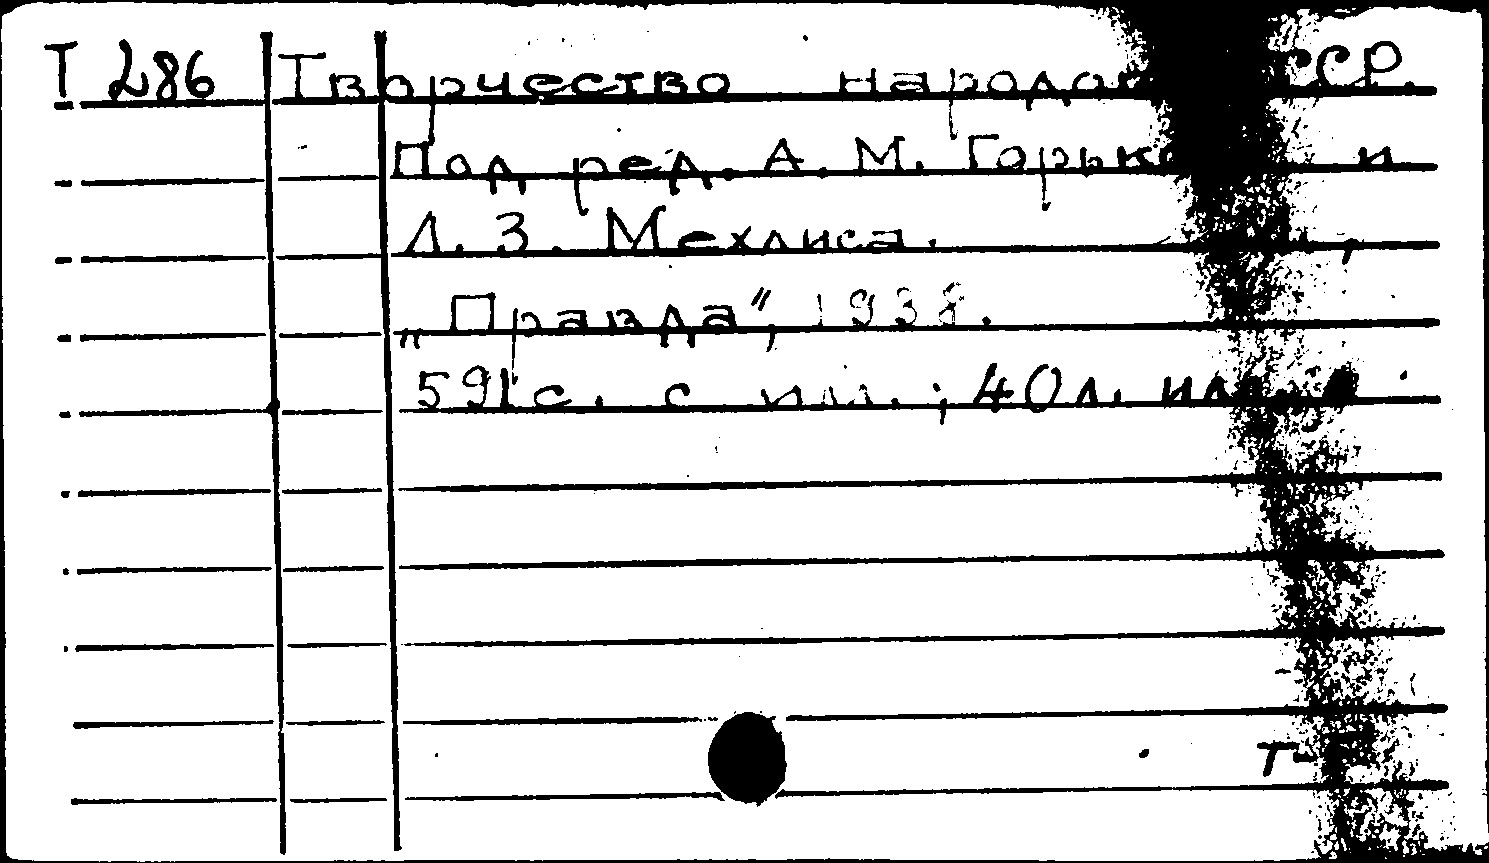 Т 286 Творчество народов СССР.
Под ред. А. М. Горького и
Л. З. Мехлиса.
„Правда“, 1938.
591 с. с илл.; 40 л. илл.